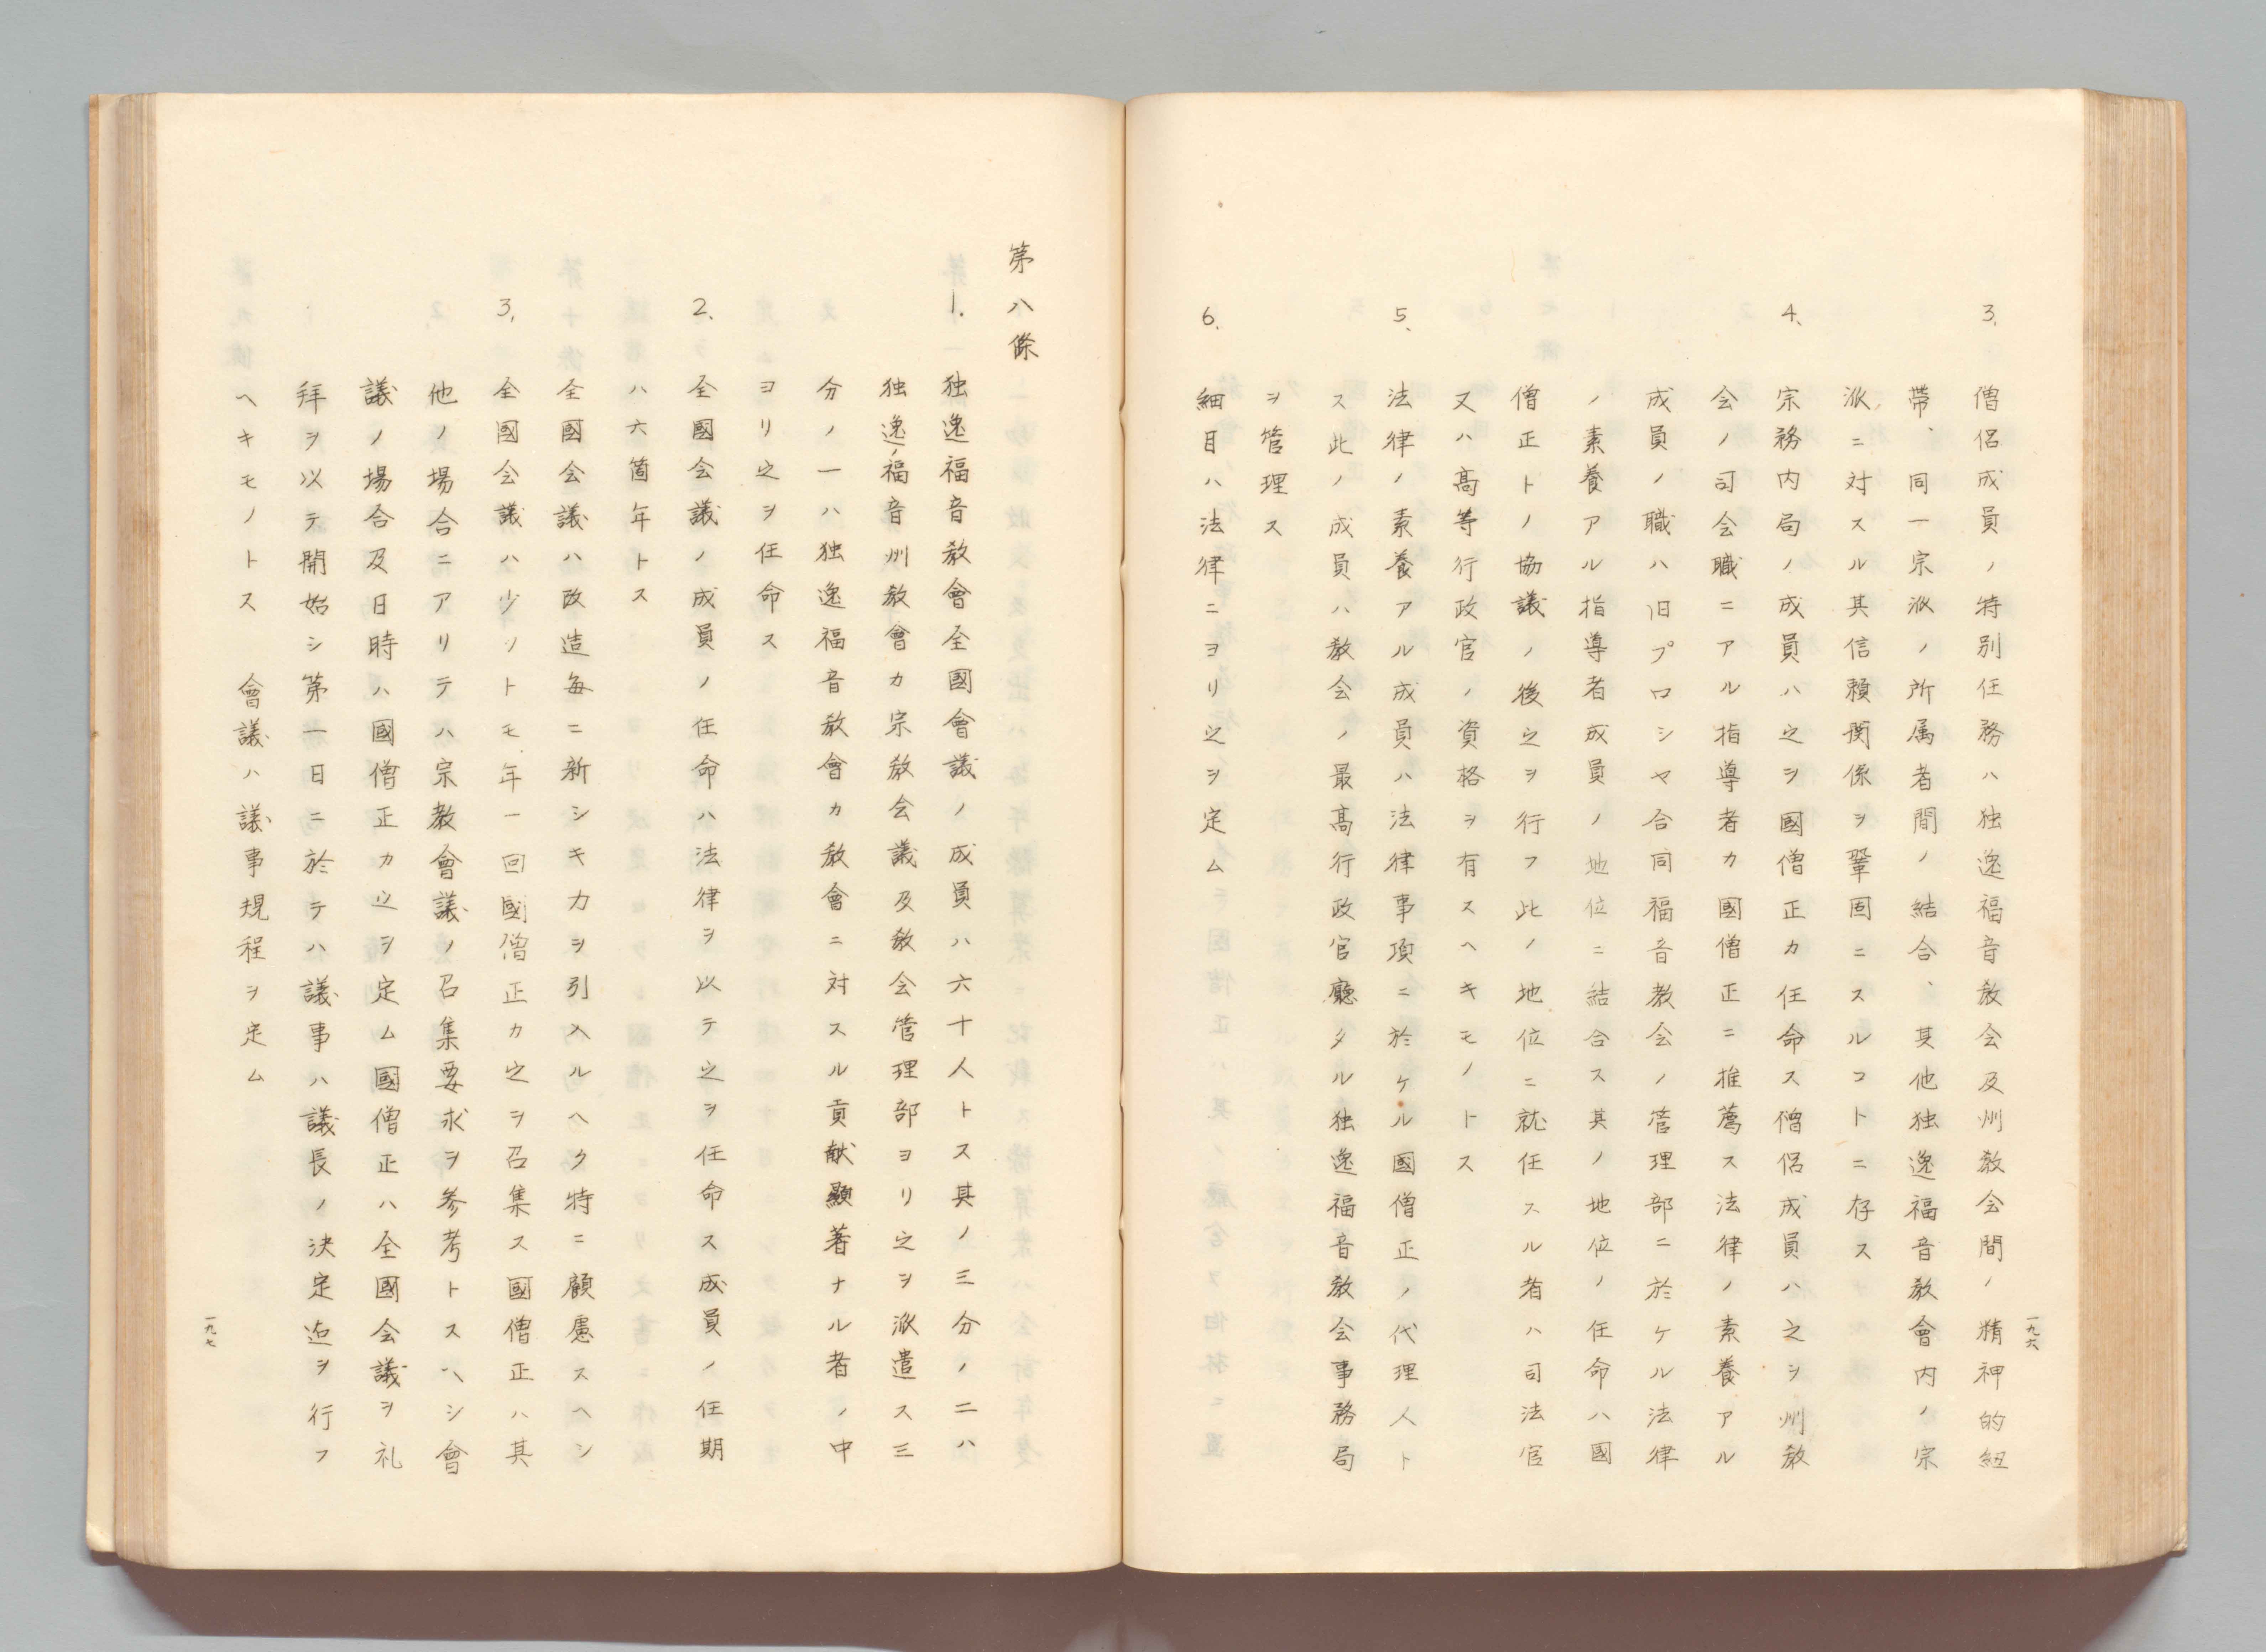 3. 僧侶成員ノ特別任務ハ独逸福音教会及州教会間ノ精神的紐
帯、同一宗派ノ所属者間ノ結合、其他独逸福音教會内ノ宗
派ニ対スル其信賴関係ヲ鞏固ニスルコトニ存ス
4. 宗務内局ノ成員ハ之ヲ國僧正カ任命ス僧侶成員ハ之ヲ州教
会ノ司会職ニアル指導者カ國僧正ニ推薦ス法律ノ素養アル
成員ノ職ハ旧プロシヤ合同福音教会ノ管理部ニ於ケル法律
ノ素養アル指導者成員ノ地位ニ結合ス其ノ地位ノ任命ハ國
僧正トノ協議ノ後之ヲ行フ此ノ地位ニ就任スル者ハ司法官
又ハ高等行政官ノ資格ヲ有スヘキモノトス
5. 法律ノ素養アル成員ハ法律事項ニ於ケル國僧正ノ代理人ト
ス此ノ成員ハ教会ノ最高行政官廳タル独逸福音教会事務局
ヲ管理ス
6. 細目ハ法律ニヨリ之ヲ定ム
一九六
第八條
1. 独逸福音教會全國會議ノ成員ハ六十人トス其ノ三分ノ二ハ
独逸福音州教會カ宗教会議及教会管理部ヨリ之ヲ派遣ス三
分ノ一ハ独逸福音教會カ教會ニ対スル貢献顯著ナル者ノ中
ヨリ之ヲ任命ス
2. 全國会議ノ成員ノ任命ハ法律ヲ以テ之ヲ任命ス成員ノ任期
ハ六箇年トス
全國会議ハ改造毎ニ新シキ力ヲ引入ルヘク特ニ顧慮スヘシ
3. 全國会議ハ少クトモ年一回國僧正カ之ヲ召集ス國僧正ハ其
他ノ場合ニアリテハ宗教會議ノ召集要求ヲ参考トスヘシ會
議ノ場合及日時ハ國僧正カ之ヲ定ム國僧正ハ全國会議ヲ礼
拜ヲ以テ開始シ第一日ニ於テハ議事ハ議長ノ決定迄ヲ行フ
ヘキモノトス 會議ハ議事規程ヲ定ム
一九七